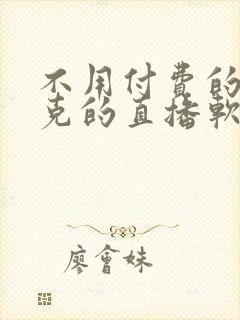 不用付費的
克的直播軟
廖會妹